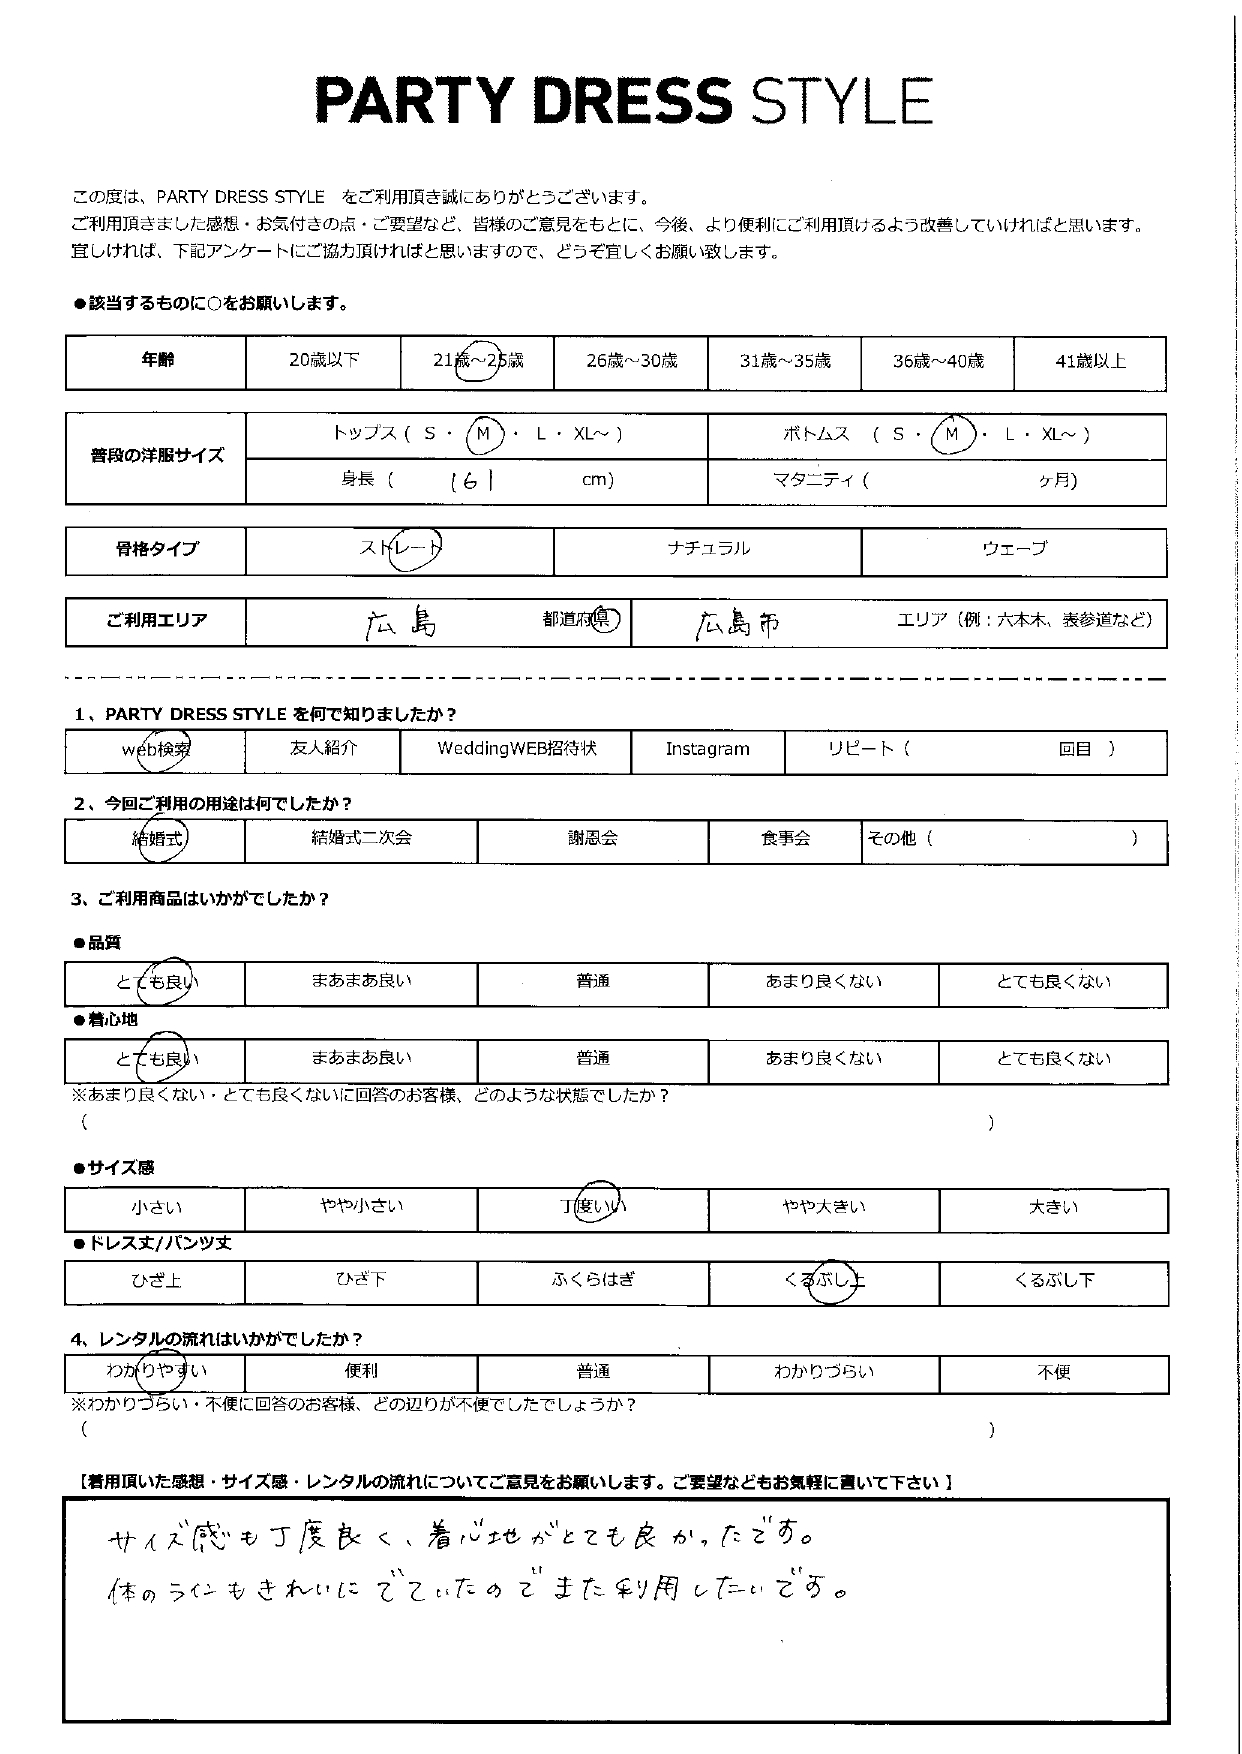 PARTY DRESS STYLE
この度は、PARTY DRESS STYLE をご利用頂き誠にありがとうございます。
ご利用頂きました感想・お気付きの点・ご要望など、皆様のご意見をもとに、今後、より便利にご利用頂けるよう改善していければと思います。
宜しければ、下記アンケートにご協力頂ければと思いますので、どうぞ宜しくお願い致します。
●該当するものに○をお願いします。
年齢 20歳以下 21歳～25歳 26歳～30歳 31歳～35歳 36歳～40歳 41歳以上
普段の洋服サイズ トップス（ S ・ M ・ L ・ XL～ ） ボトムス （ S ・ M ・ L ・ XL～ ）
身長（ 161 cm） マタニティ（ ヶ月）
骨格タイプ ストレート ナチュラル ウェーブ
ご利用エリア 広島 都道府県 広島市 エリア（例：六本木、表参道など）
1、PARTY DRESS STYLE を何で知りましたか？
web検索 友人紹介 WeddingWEB招待状 Instagram リピート（ 回目 ）
2、今回ご利用の用途は何でしたか？
結婚式 結婚式二次会 謝恩会 食事会 その他（ ）
3、ご利用商品はいかがでしたか？
●品質
とても良い まあまあ良い 普通 あまり良くない とても良くない
●着心地
とても良い まあまあ良い 普通 あまり良くない とても良くない
※あまり良くない・とても良くないに回答のお客様、どのような状態でしたか？
（ ）
●サイズ感
小さい やや小さい 丁度いい やや大きい 大きい
●ドレス丈/パンツ丈
ひざ上 ひざ下 ふくらはぎ くるぶし上 くるぶし下
4、レンタルの流れはいかがでしたか？
わかりやすい 便利 普通 わかりづらい 不便
※わかりづらい・不便に回答のお客様、どの辺りが不便でしたでしょうか？
（ ）
【着用頂いた感想・サイズ感・レンタルの流れについてご意見をお願いします。ご要望などもお気軽に書いて下さい】
サイズ感も丁度良く、着心地がとても良かったです。
体のラインもきれいにでていたのでまた利用したいです。